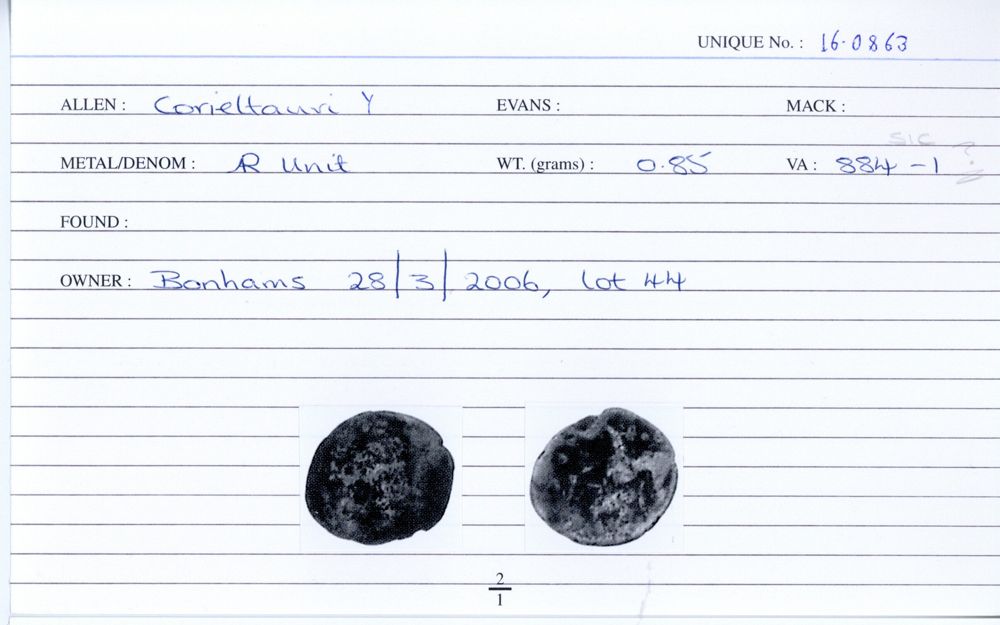 UNIQUE No. : 16.0863
ALLEN : Corieltauvi Y EVANS : MACK :
SIC ?
METAL/DENOM : AR Unit WT. (grams) : 0.85 VA : 884-1
FOUND :
OWNER : Bonhams 28/3/2006, lot 44
2
1